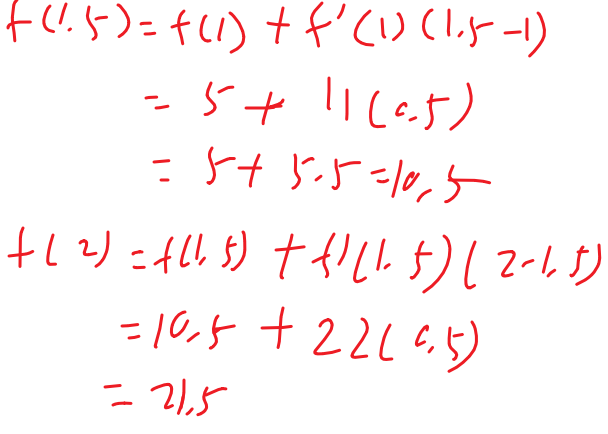 f(1.5) = f(1) + f'(1)(1.5-1)
= 5 + 11(0.5)
= 5 + 5.5 = 10.5
f(2) = f(1.5) + f'(1.5)(2-1.5)
= 10.5 + 22(0.5)
= 21.5